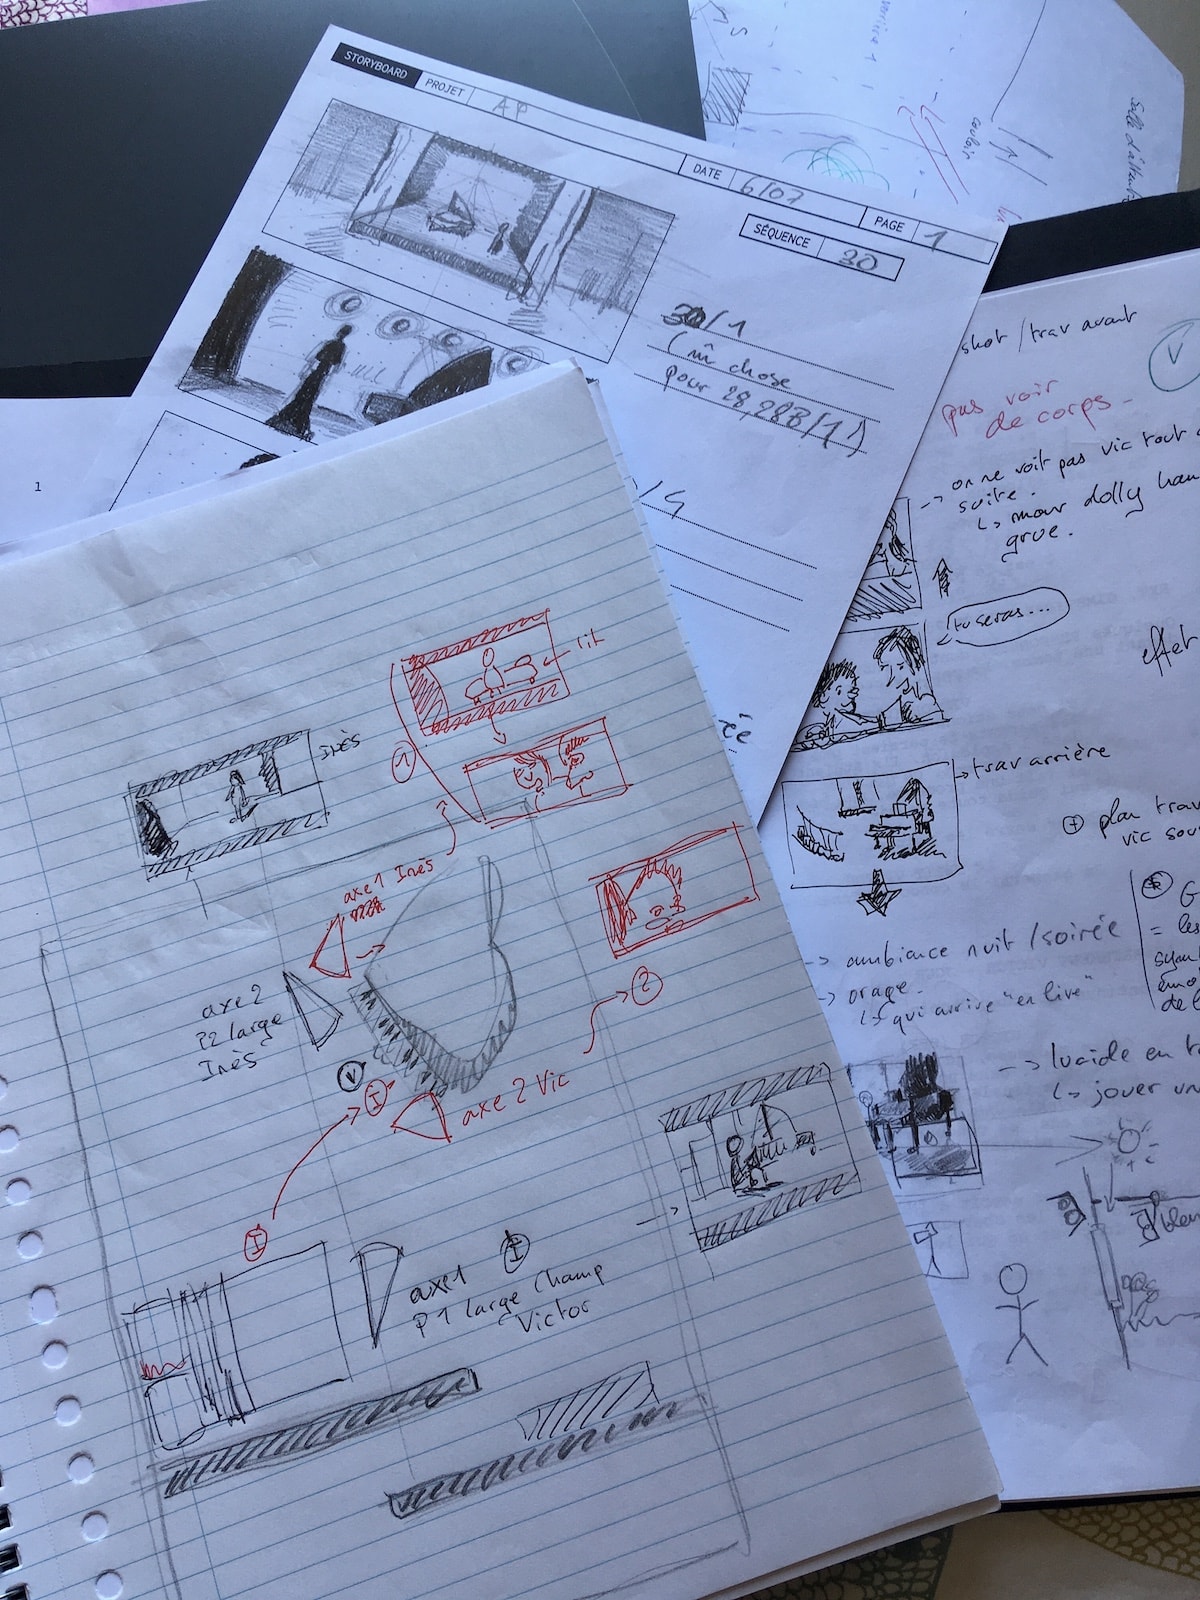 STORYBOARD
PROJET
AP
DATE
6/07
PAGE
1
SÉQUENCE
30
30/1
(m̂ chose
pour 28,28B/1)
/4
couloir
1
shot / trav avant
V
pas voir
de corps-
-> on ne voit pas vic tout
suite.
↳ mouv dolly
grue.
tu seras...
effet
-> trav arrière
plan trav
vic
-> ambiance nuit / soirée
-> orage.
↳ qui arrive "en live"
G
= les
-> lucide en
↳ jouer un
lit
1
Inès
axe 1 Inès
2
axe 2
P2 large
Inès
V
I
axe 2 Vic
I
axe 1
I
P1 large Champ
Victor